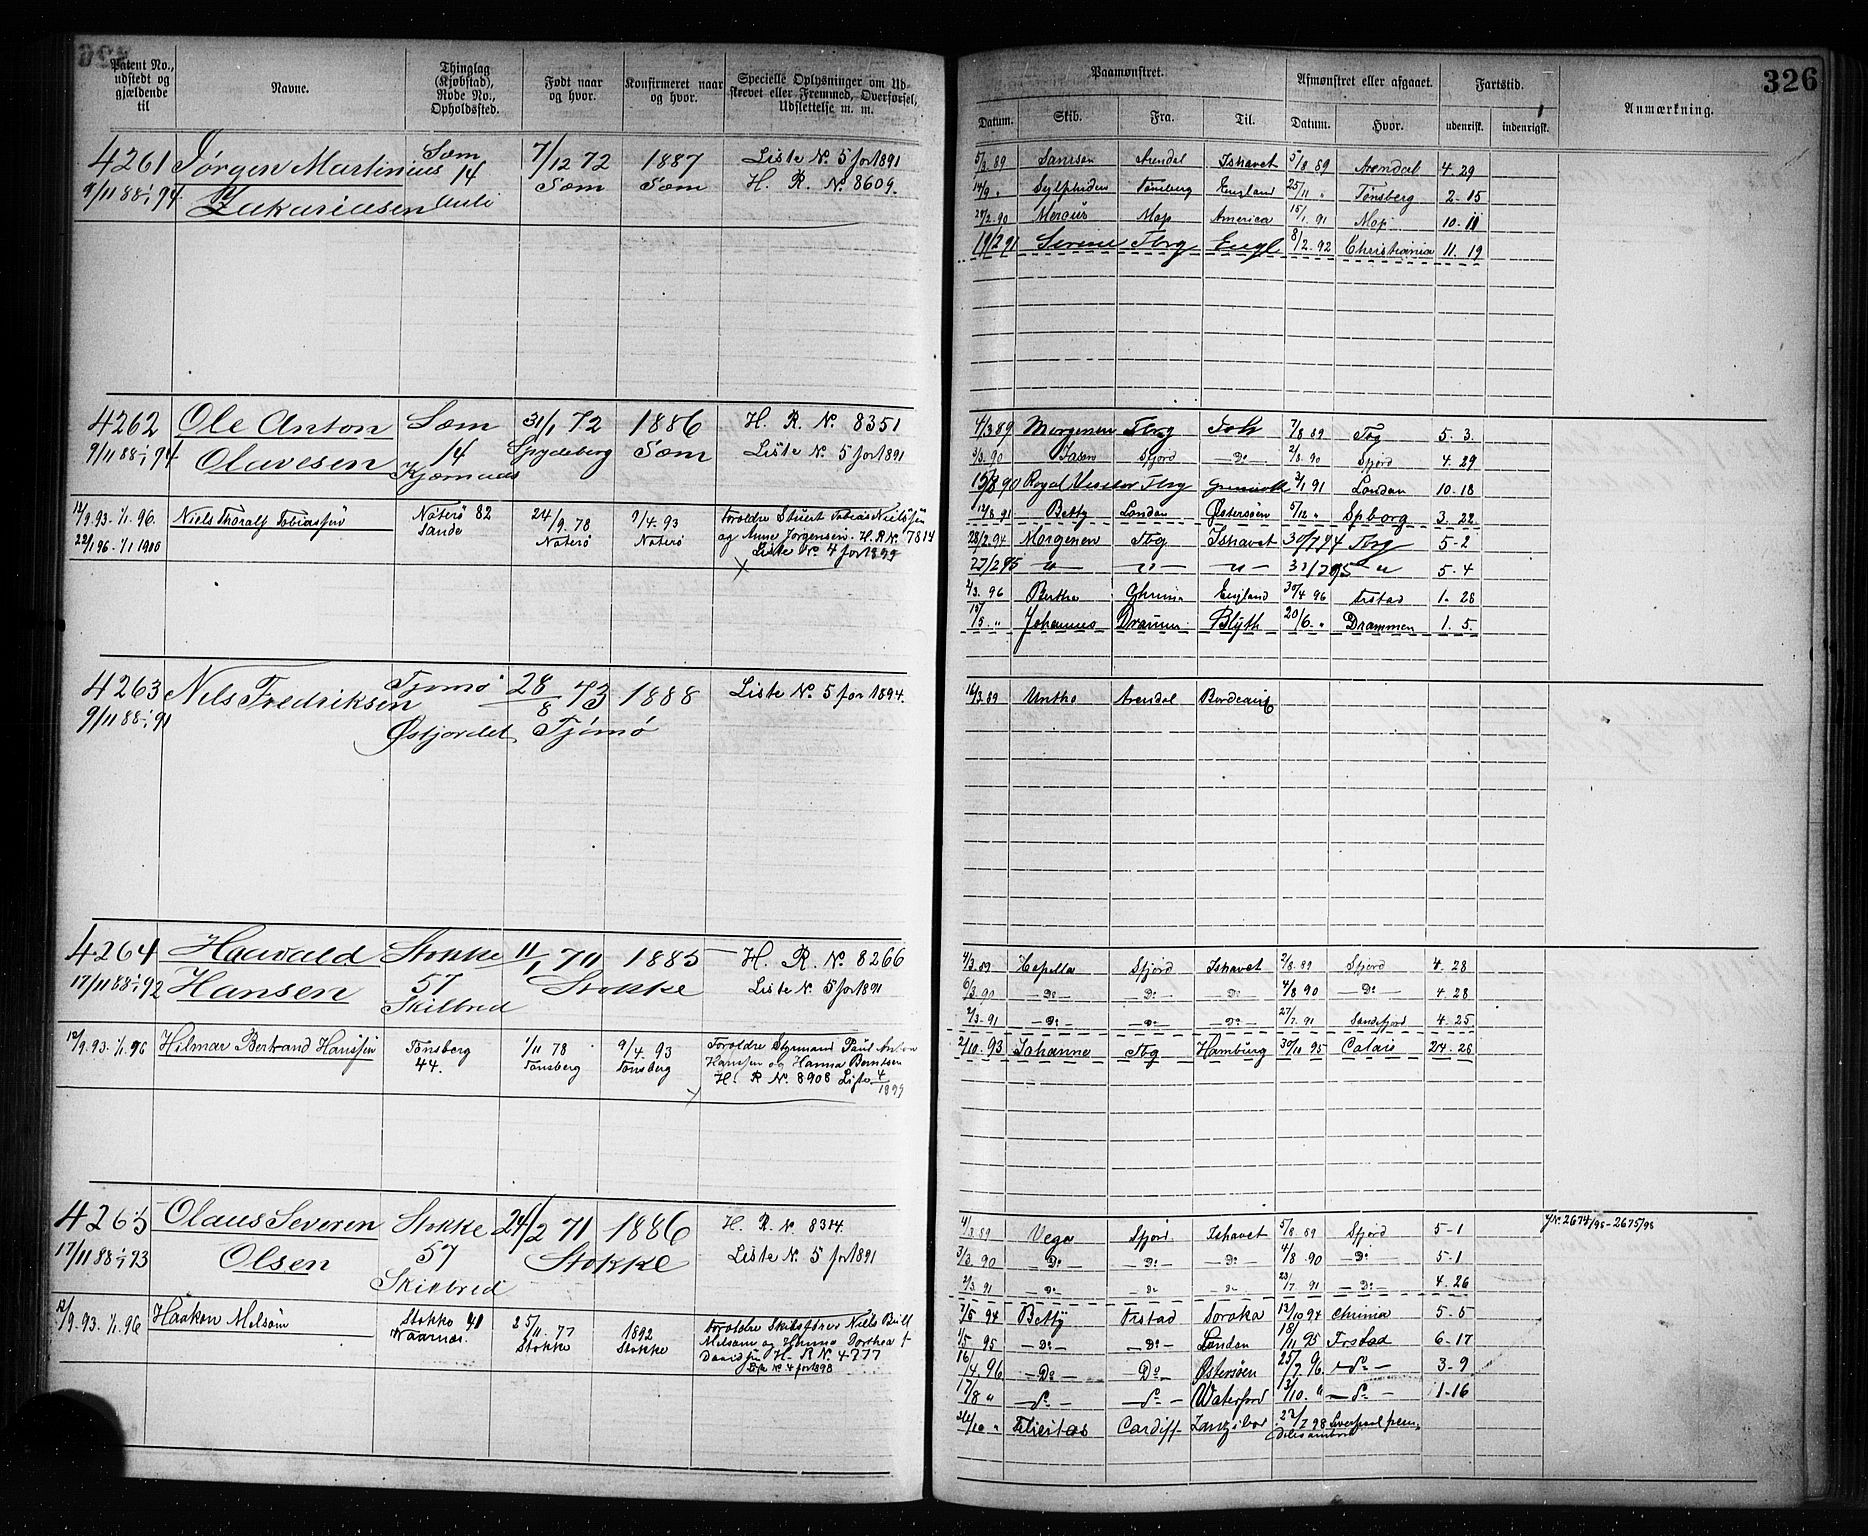 326
Patent No., udstedt og gjældende til
Navne.
Thinglag (Kjøbstad), Rode No., Opholdssted.
Født naar og hvor.
Konfirmeret naar og hvor.
Specielle Oplysninger om Udskrevet eller Fremmed, Overførsel, Udslettelse m. m.
Paamønstret.
Afmønstret eller afgaaet.
Fartstid.
Anmærkning.
Datum. Skib. Fra. Til. Datum. Hvor. udenrigsk. indenrigsk.
4261 Jørgen Martinius Sæm 7/12 72 1887 Liste No. 5 for 1891
9/11 88 1/1 94 Zakariasen 14 Sæm Sæm H. R. No. 8609.
Auli
5/3 89 Samson Arendal Ishavet 5/8 89 Arendal 4. 29
14/9 " Sylphiden Tønsberg England 25/11 " Tønsberg 2. 15
Mop America 15/1 91 Mop 10. 11
19/2 91 Severe Tbrg Engl 8/2. 92 Christiania 11. 19
4262 Ole Anton Sæm 31/1 72 1886 H. R. No. 8351
9/11 88 1/1 94 Olavesen 14 Spydeberg Sæm Liste No. 5 for 1891
Kjærnaas
4/3 89 Morgenen Tbrg 7/8 89 Tbg 5. 3.
3/3. 90 Jasen Sfjord - Do - 2/8. 90 Sfjord 4. 29
15/8 90 Royal 3/1 91 London 10. 18
17/8 91 Betty London Østersøen 5/12 " Spborg 3. 22
12/9. 93. 1/1. 96. Niels Thoralf Tobiassen Nøterø 82 24/9. 78 9/4. 93 Forældre Stuert Tobias Nielssen
22/1 96. 1/1 1900 Sande Nøterø Nøterø og Anne Jørgensen. H. R. No. 7814
Liste No. 4 for 1899
28/2. 94 Morgenen Tbg Ishavet 30/7 94 Tbrg 5-2
27/2 95 - " - - " - - " - 31/7 95 " 5. 4
2/3. 96 Bertha Ghrinia England 30/4 96 Frstad 1. 28
15/5 " Johannes Dramm. Blyth 20/6. " Drammen 1. 5.
4263 Nils Fredriksen Tjømø 28/8 73 1888 Liste No. 5 for 1894.
9/11 88 1/1 91 Østjordet Tjømø
16/3. 89 Arendal Bordeaux
4264 Haavald Stokke 11/1 70 1885 H. R. No. 8266
17/11 88 1/1 92 Hansen 57 Stokke Liste No. 5 for 1891
Skilbred
4/3. 89 Capella Sfjord Ishavet 2/8. 89 Sfjord 4. 28
6/3. 90 - Do - Do - Do - 4/8 90 - Do - 4. 28
2/3. 91 - Do - - Do - - Do - 27/7. 91 Sandefjord 4. 25
12/9. 93. 1/1. 96 Hilmar Bertrand Hanssen Tønsberg 1/11 78 9/4. 93 Forældre Styrmand Paul Anton
44. Tønsberg Tønsberg Hanssen og Hanna Berntsen
H. R No. 8908 Liste 4/1899
2/10. 93 Johanne Tbg Hamburg 30/10 95 Calais 24. 26
4265 Olaus Severen Stokke 24/2 71 1886 H. R. No. 8314.
17/11 88 1/1 93 Olsen 57 Stokke Liste No. 5 for 1891
Skilbred
4/3 89 Vega Sfjord Ishavet 5/8 89 Sfjord 5-1 JNo. 2674/98-2675/98
3/3. 90 - Do - - Do - - Do - 4/8 90 - Do - 5-1
2/3. 91 - Do - - do - - do - 23/7 91 - Do - 4. 26
12/9. 93. 1/1. 96 Haakon Melsom Stokke 41 25/11. 77 1892 Forældre Skibsfører Niels Bull
Vaarnæs Stokke Stokke Melsom og Hanna Dorthea f
Davidsen H. R No. 4777
Liste No. 4 for 1898
Betty Frstad Soroka 13/10 94 Chrinia 5-5
1/5 95 - Do - - Do - London 18/11 95 Frstad 6-17
16/4. 96 - Do - Do - Østersøen 25/7. 96 - do - 3-9
17/8 " - do - - do - Waterford 13/10. " - do - 1-16
Felicitas Cardiff Zanzibar 27/7 98 Liverpool